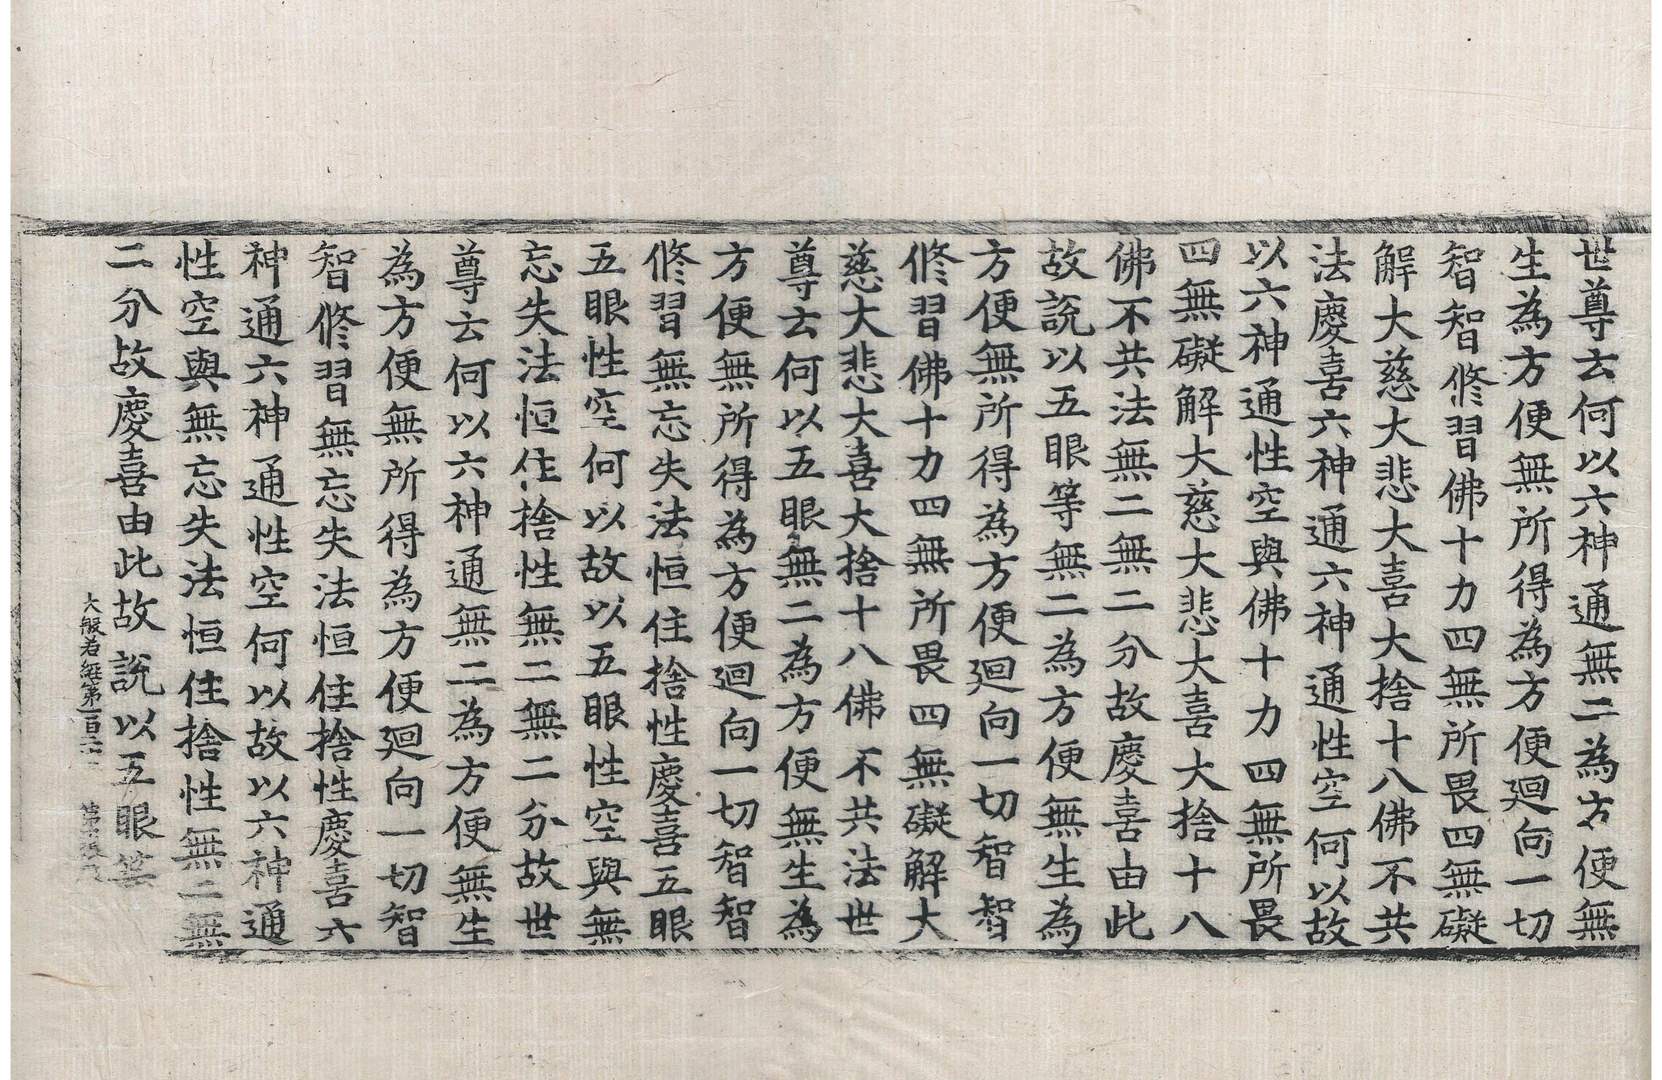 世尊云何以六神通無二為方便無
生為方便無所得為方便廻向一切
智智修習佛十力四無所畏四無礙
解大慈大悲大喜大捨十八佛不共
法慶喜六神通六神通性空何以故
以六神通性空與佛十力四無所畏
四無礙解大慈大悲大喜大捨十八
佛不共法無二無二分故慶喜由此
故說以五眼等無二為方便無生為
方便無所得為方便廻向一切智智
修習佛十力四無所畏四無礙解大
慈大悲大喜大捨十八佛不共法世
尊云何以五眼無二為方便無生為
方便無所得為方便廻向一切智智
修習無忘失法恒住捨性慶喜五眼
五眼性空何以故以五眼性空與無
忘失法恒住捨性無二無二分故世
尊云何以六神通無二為方便無生
為方便無所得為方便廻向一切智
智修習無忘失法恒住捨性慶喜六
神通六神通性空何以故以六神通
性空與無忘失法恒住捨性無二無
二分故慶喜由此故說以五眼等
大般若經第一百 第 張